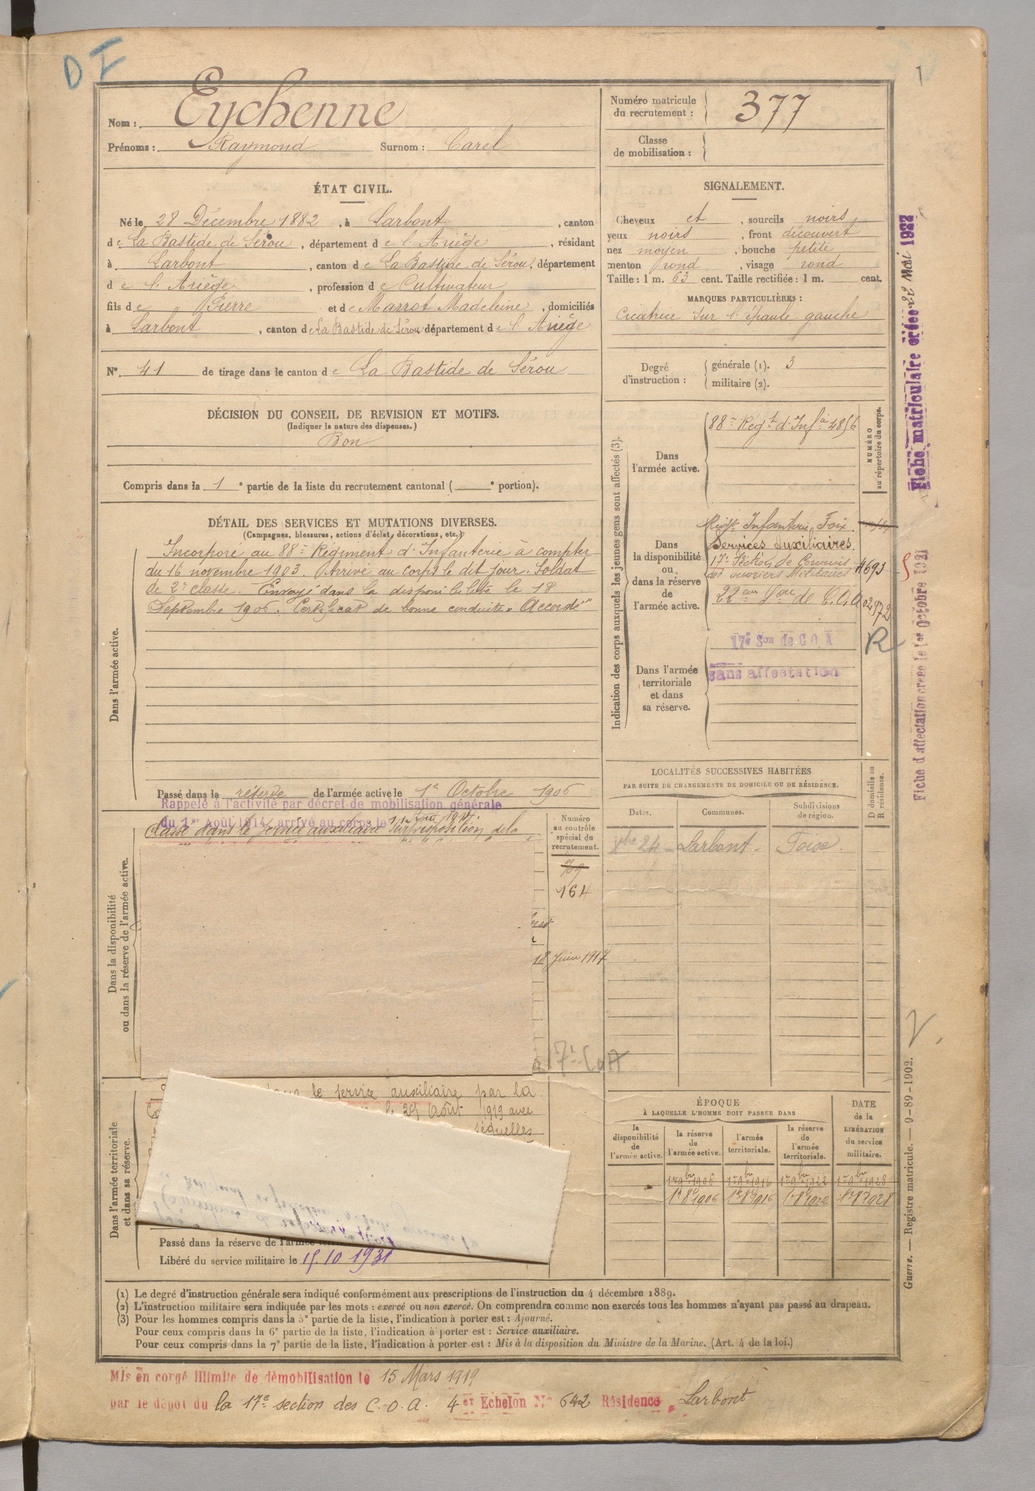 D I
1
Nom : Eychenne
Prénoms : Raymond Surnom : Carel
Numéro matricule du recrutement : 377
Classe de mobilisation :
ÉTAT CIVIL.
Né le 28 Décembre 1882, à Larbont, canton
de La Bastide de Sérou, département de l'Ariège, résidant
à Larbont, canton de La Bastide de Sérou, département
de l'Ariège, profession de Cultivateur
fils de Pierre et de Marrot Madeleine, domiciliés
à Larbont, canton de La Bastide de Sérou département de l'Ariège
N° 41 de tirage dans le canton de La Bastide de Sérou
SIGNALEMENT.
Cheveux et, sourcils noirs
yeux noirs, front découvert
nez moyen, bouche petite
menton rond, visage rond
Taille : 1 m. 63 cent. Taille rectifiée : 1 m. cent.
MARQUES PARTICULIÈRES :
Cicatrice sur l'épaule gauche
Degré d'instruction :
générale (1). 3
militaire (2).
DÉCISION DU CONSEIL DE REVISION ET MOTIFS.
(Indiquer la nature des dispenses.)
Bon
Compris dans la 1e partie de la liste du recrutement cantonal ( e portion).
DÉTAIL DES SERVICES ET MUTATIONS DIVERSES.
(Campagnes, blessures, actions d'éclat, décorations, etc.)
Incorporé au 88e Régiment d'Infanterie à compter
du 16 novembre 1903. Arrivé au corps le dit jour. Soldat
de 2e classe. Envoyé dans la disponibilité le 18
Septembre 1906. Certificat de bonne conduite "Accordé"
Dans l'armée active.
Passé dans la réserve de l'armée active le 1er Octobre 1906
Rappelé à l'activité par décret de mobilisation générale
du 1er Août 1914, arrivé au corps le
Classé dans le service auxiliaire
Dans la disponibilité ou dans la réserve de l'armée active.
Numéro au contrôle spécial du recrutement.
164
18 Juin 1917
Indication des corps auxquels les jeunes gens sont affectés (3).
Dans l'armée active.
88e Régt d'Infie 4856
NUMÉRO au répertoire du corps.
Dans la disponibilité ou dans la réserve de l'armée active.
Régt Infanterie Foix
Services Auxiliaires
17e Section de Commis
et ouvriers Militaires
22e
R
Dans l'armée territoriale et dans sa réserve.
17e Son de C O A
sans affectation
LOCALITÉS SUCCESSIVES HABITÉES
PAR SUITE DE CHANGEMENTS DE DOMICILE OU DE RÉSIDENCE.
Dates. Communes. Subdivisions de région. D domicile ou R résidence.
24 Larbont Foix
ÉPOQUE
À LAQUELLE L'HOMME DOIT PASSER DANS
la disponibilité de l'armée active.
la réserve de l'armée active.
l'armée territoriale.
la réserve de l'armée territoriale.
DATE de la LIBÉRATION du service militaire.
Dans l'armée territoriale et dans sa réserve.
le service auxiliaire par la
le 29 Août 1919 avec
séquelles
Passé dans la réserve de l'armée
Libéré du service militaire le 15.10.1931
(1) Le degré d'instruction générale sera indiqué conformément aux prescriptions de l'instruction du 4 décembre 1889.
(2) L'instruction militaire sera indiquée par les mots : exercé ou non exercé. On comprendra comme non exercés tous les hommes n'ayant pas passé au drapeau.
(3) Pour les hommes compris dans la 5e partie de la liste, l'indication à porter est : Ajourné.
Pour ceux compris dans la 6e partie de la liste, l'indication à porter est : Service auxiliaire.
Pour ceux compris dans la 7e partie de la liste, l'indication à porter est : Mis à la disposition du Ministre de la Marine. (Art. 4 de la loi.)
Mis en congé illimité de démobilisation le 15 Mars 1919
par le dépôt du la 17e section des C.O.A. 4er Echelon No 642 Résidence Larbont
Fiche matriculaire créée Mai 1922
Fiche d'affectation créée le 1er Octobre 1921
Guerre. — Registre matricule. — 9-89-1902.